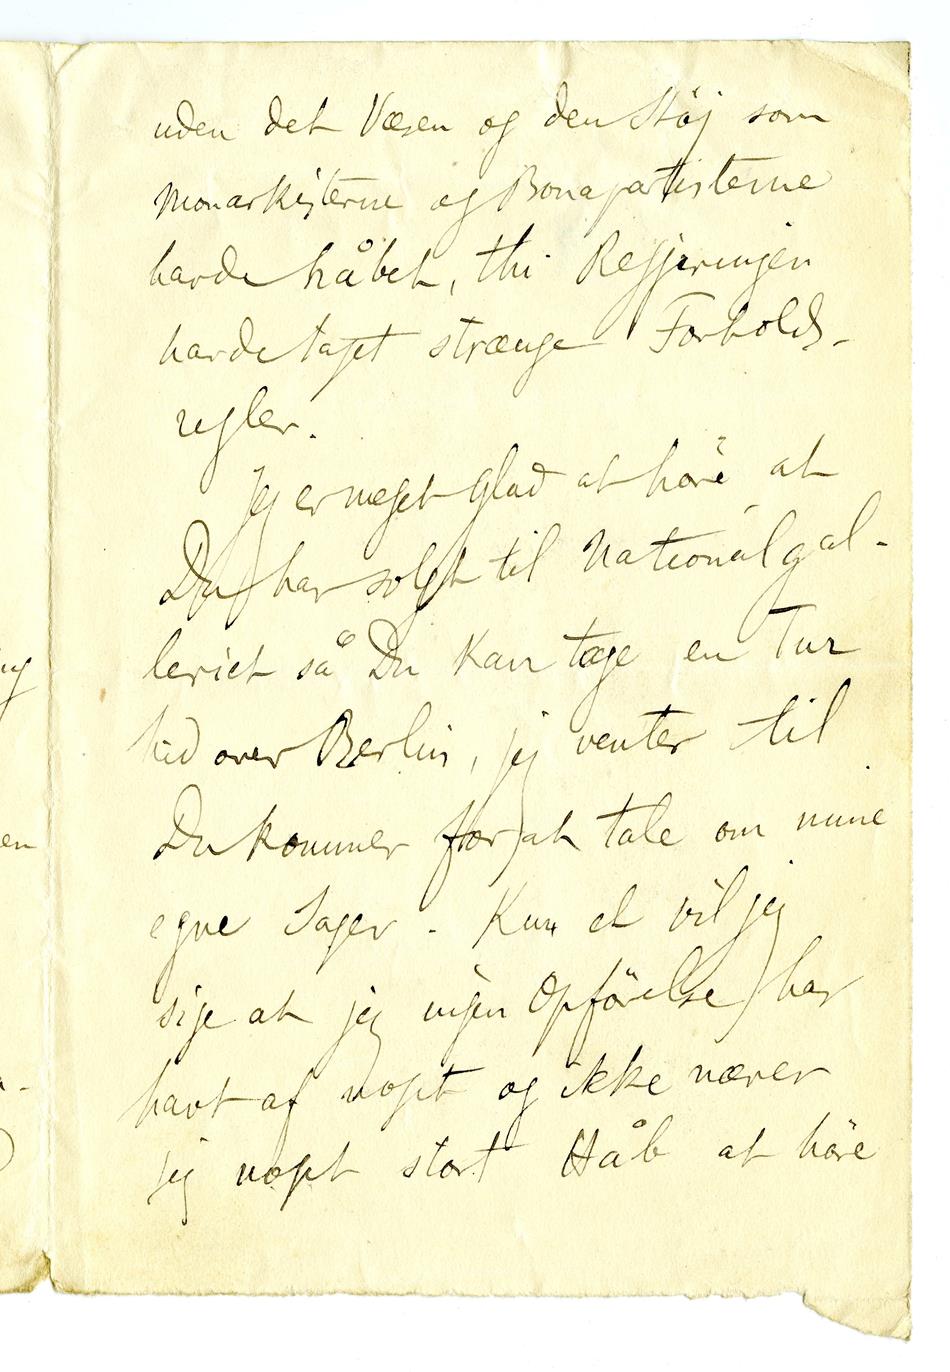 uden det Væsen og den Støj som
Monarkisterne og Bonapartisterne
havde håbet, thi Regjeringen
havde taget strænge Forholds-
regler.
Jeg er meget glad at höre at
Du har solgt til Nationalgal-
leriet så Du kan tage en Tur
hid over Berlin, jeg venter til
Du kommer for at tale om mine
egne Sager. Kun et vil jeg
sige at jeg ingen Opförelse har
havt af noget og ikke nærer
jeg noget stort Håb at höre
ng
en